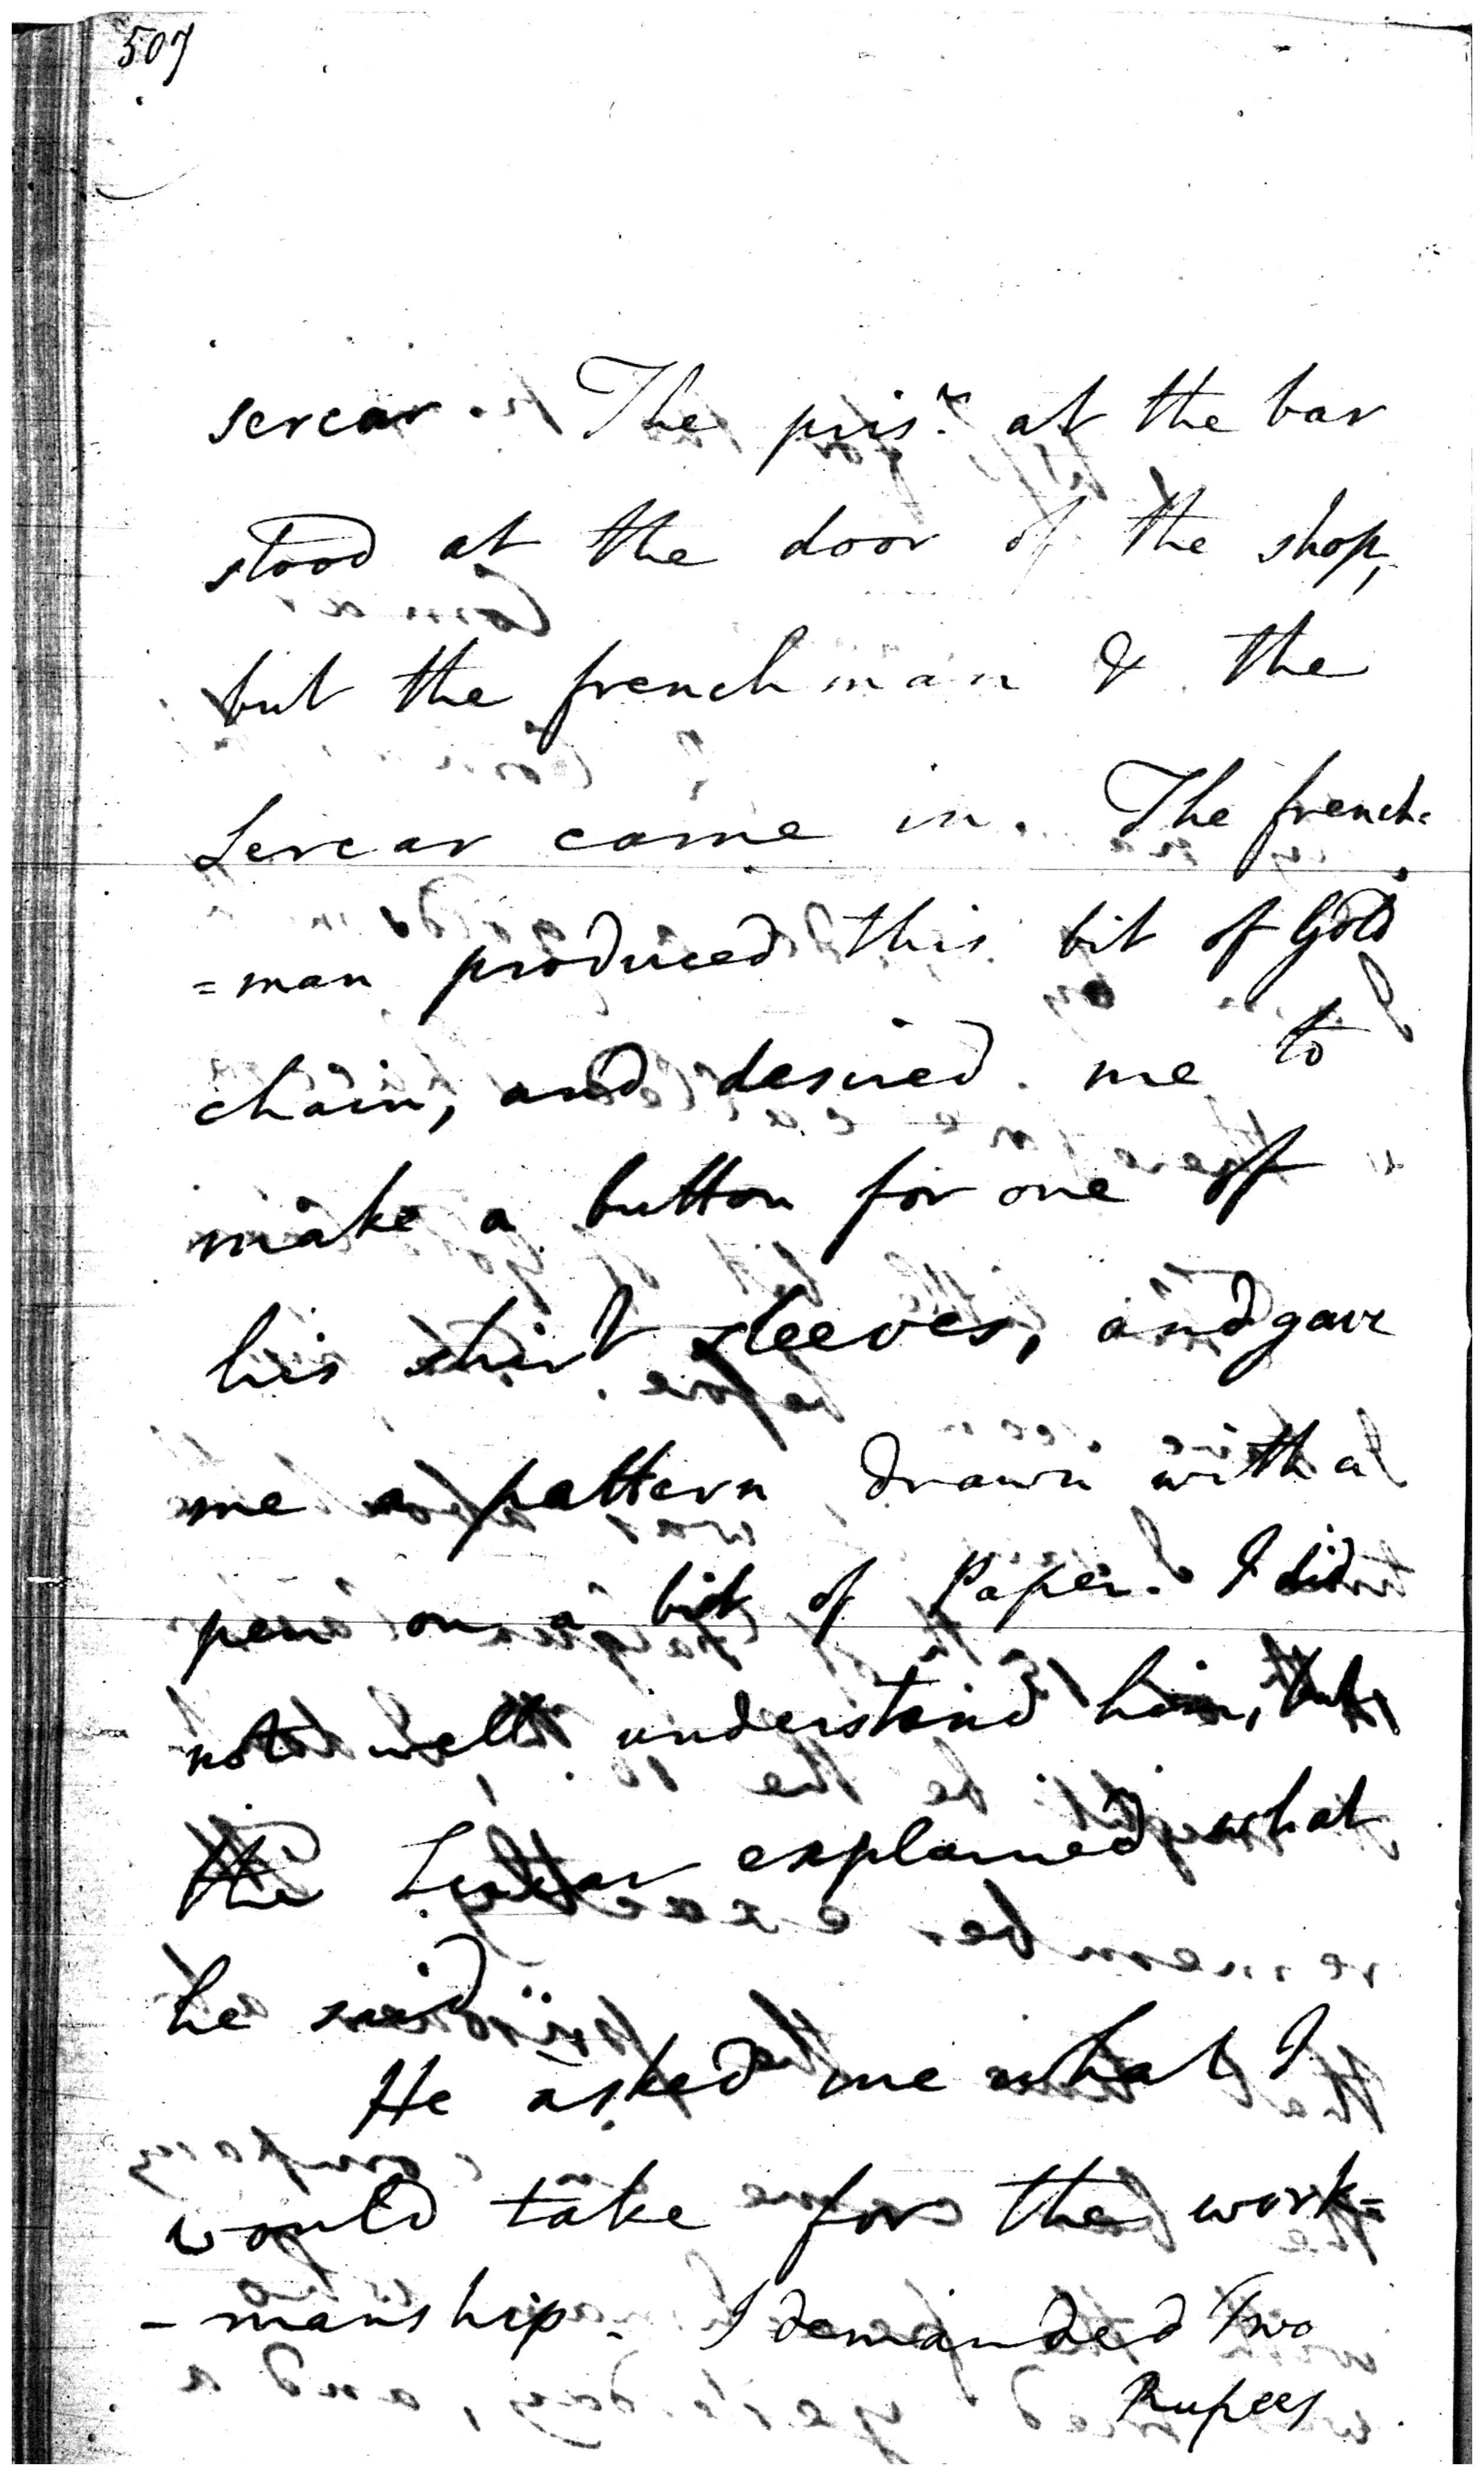 507
sercar. The prisr. at the bar
stood at the door of the shop,
but the frenchman & the
Sercar came in. The french=
=man produced this bit of Gold
chain, and desired me to
make a button for one of
his shirt sleeves, and gave
me a pattern drawn with a
pen on a bit of Paper. I did
not well understand him, but
the Sercar explained what
he said.
He asked me what I
would take for the work=
-manship. I demanded Two
Rupees